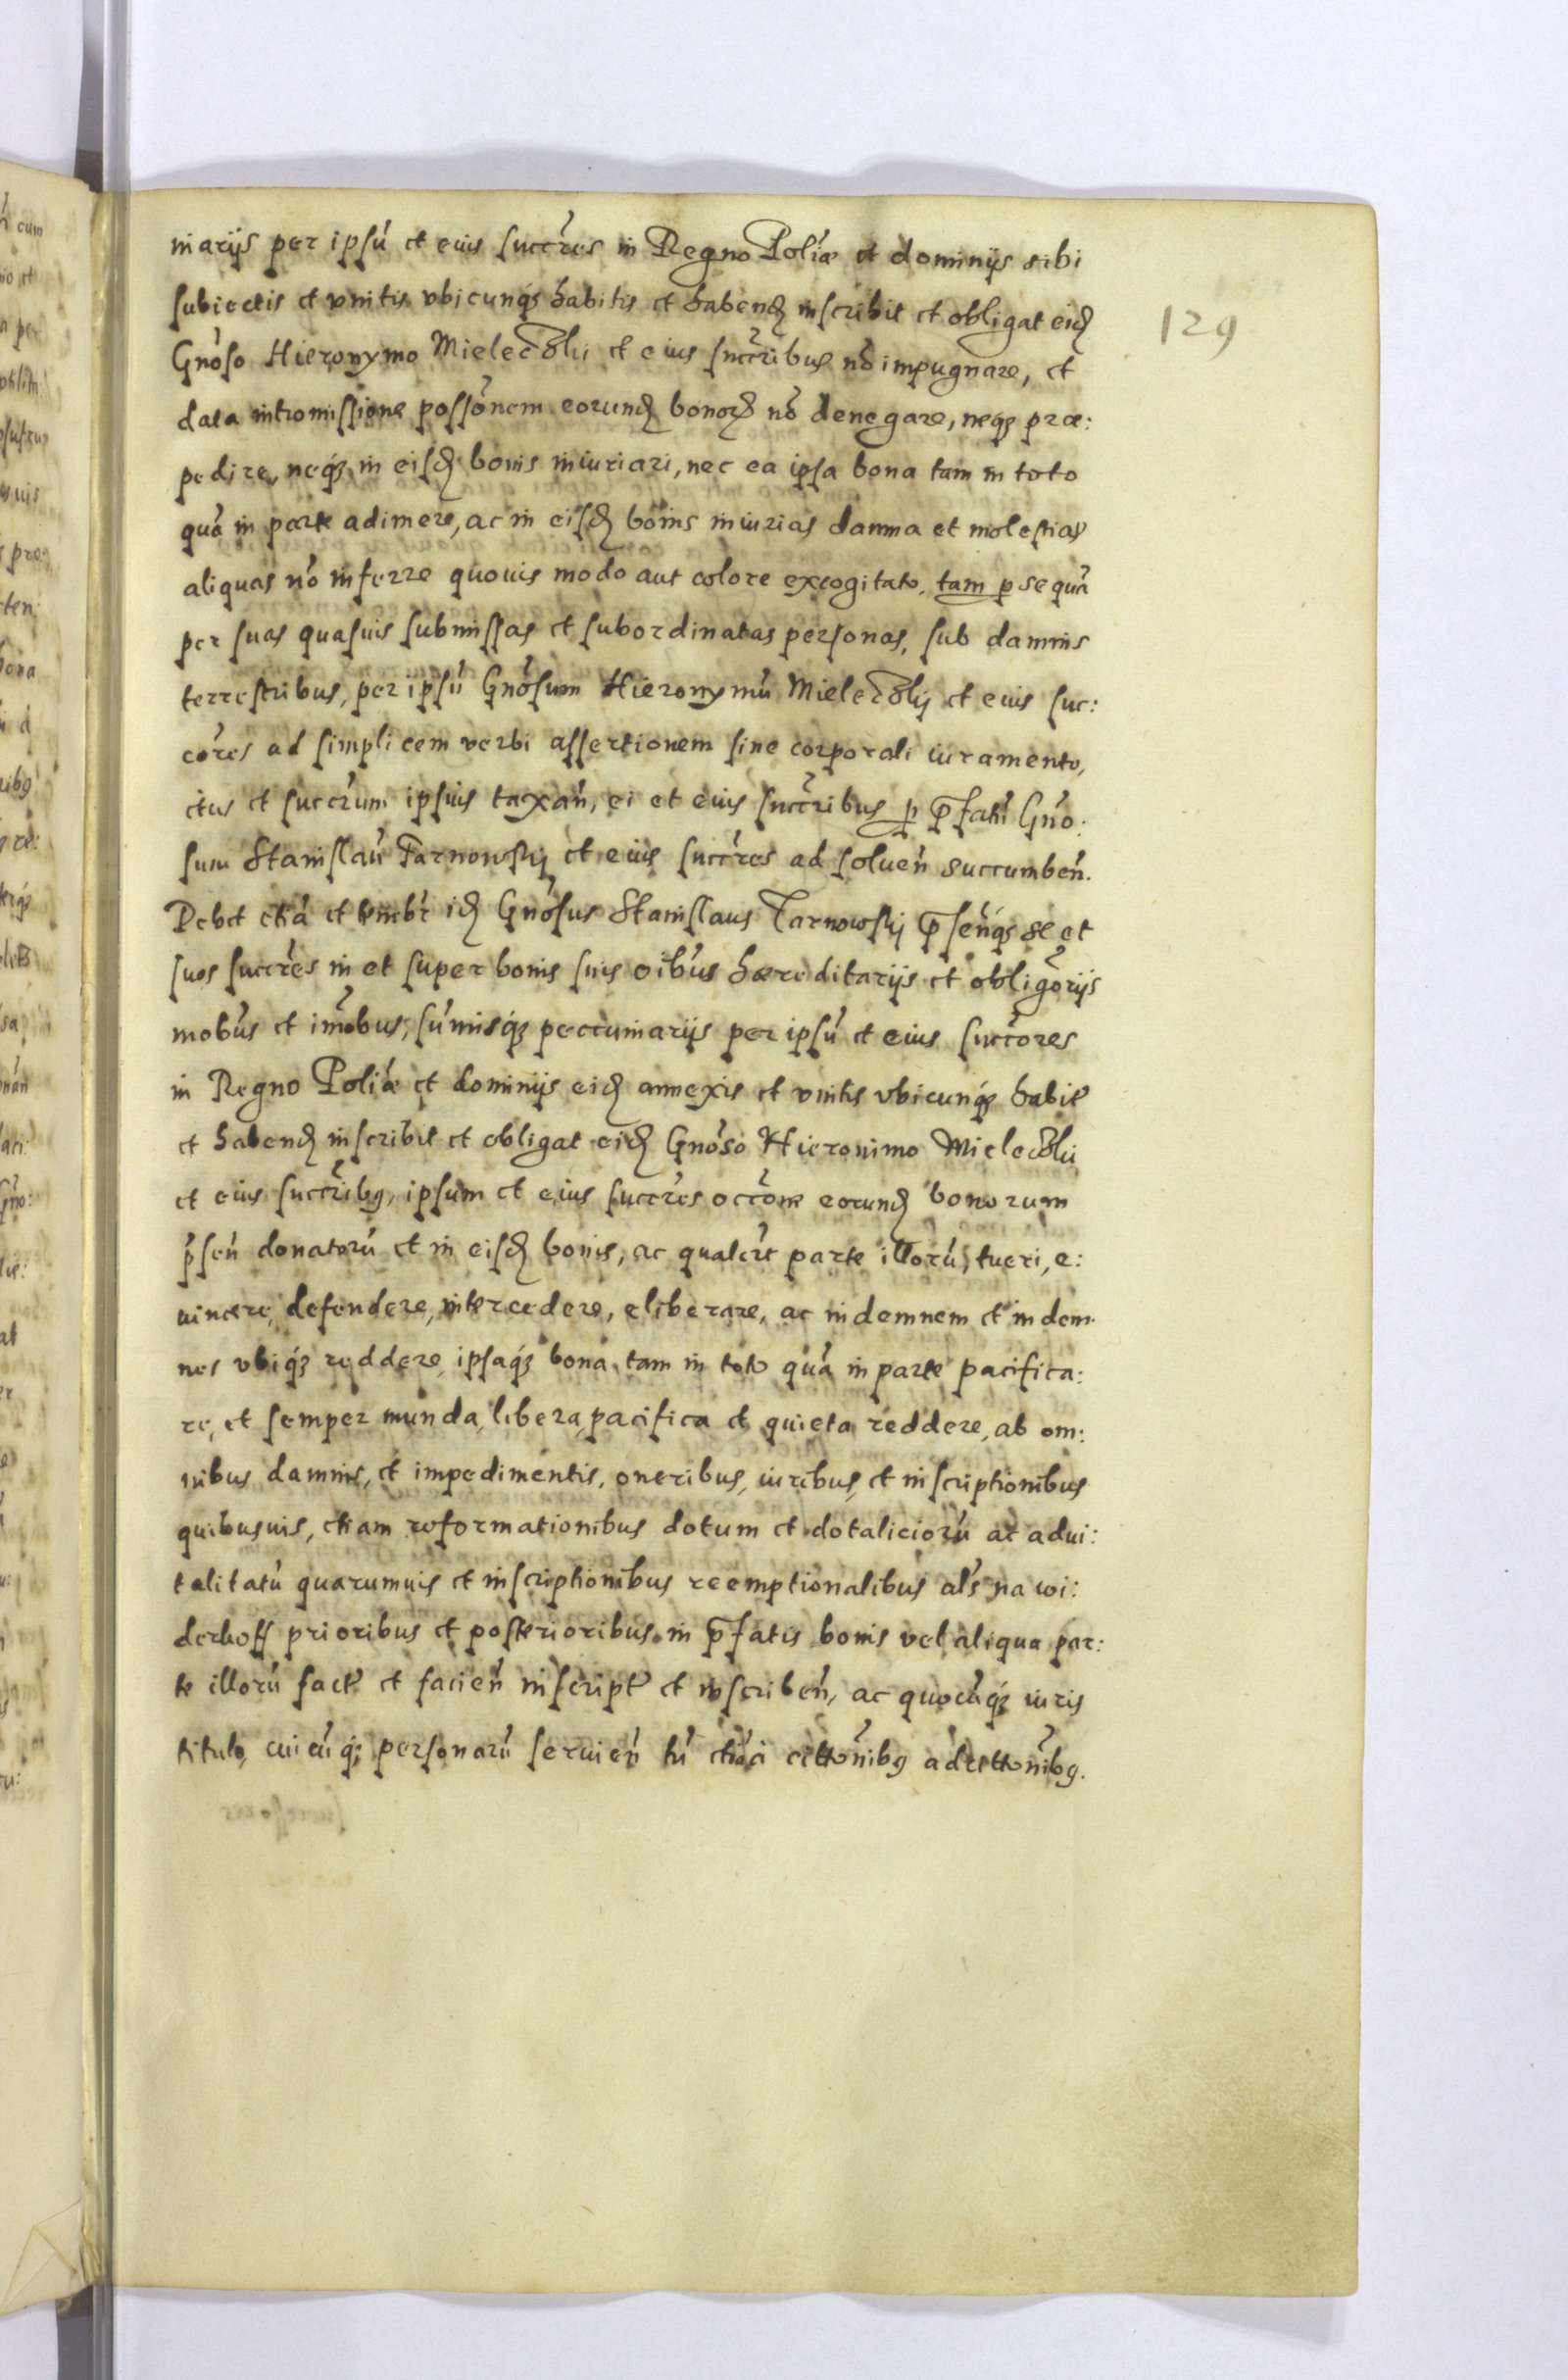 niarijs per ipsū et eius succ̄res in Regno Polīæ et dominijs sibi
subiectis et vnitis vbicunq3 habitis et habend inscribit et obligat eid
129
Gnōso Hieronymo Mieleczki et eius succ̄ribus nō impugnare, et
data intromissione possōnem eorund bonor nō denegare, neq3 præ:
pedire, neq3 in eisd bonis iniuriari, nec ea ipsa bona tam in toto
quā in parte adimere, ac in eisd bonis iniurias damna et molestias
aliquas nō inferre quouis modo aut colore excogitato, tam p se quā
per suas quasuis submissas et subordinatas personas, sub damnis
terrestribus, per ipsū Gnōsum Hieronymū Mieleczkij et eius suc:
cōres ad simplicem verbi assertionem sine corporali iuramento,
eius et succ̄rum ipsius taxan̄, ei et eius succ̄ribus p p̄fatū Gnō:
sum Stanislaū Tarnowskij et eius succ̄res ad soluen̄ succumben̄.
Debet etiā et tenebr̄ id Gnōsus Stanislaus Tarnowskij p̄senq3 se et
suos succ̄res in et super bonis suis oībus hæreditarijs et obligōrijs
mobūs et imōbus, sūmisq3 peccuniarijs per ipsū et eius succ̄ores
in Regno Polīæ et dominijs eid annexis et vnitis vbicunq3 habit
et habend inscribit et obligat eid Gnōso Hieronimo Mieleczkii
et eius succ̄rib9, ipsum et eius succ̄res occ̄one eorund bonorum
p̄sen̄ donatorū et in eisd bonis, ac qualr̄t parte illorū, tueri, e:
uincere, defendere, intercedere, eliberare, ac indemnem et indem:
nes vbiq3 reddere, ipsaq3 bona tam in toto quā in parte pacifica:
re, et semper munda, libera, pacifica et quieta reddere, ab om:
nibus damnis, et impedimentis, oneribus, iuribus, et inscriptionibus
quibusuis, etiam reformationibus dotum et dotaliciorū ac adui:
talitatū quarumuis et inscriptionibus reemptionalibus al̄s na wi:
derkoff prioribus et posterioribus in p̄fatis bonis vel aliqua par:
te illorū fact et facien̄ inscript et inscriben̄, ac quocūq3 iuris
titulo, cuicūq3 personarū seruien̄ tū